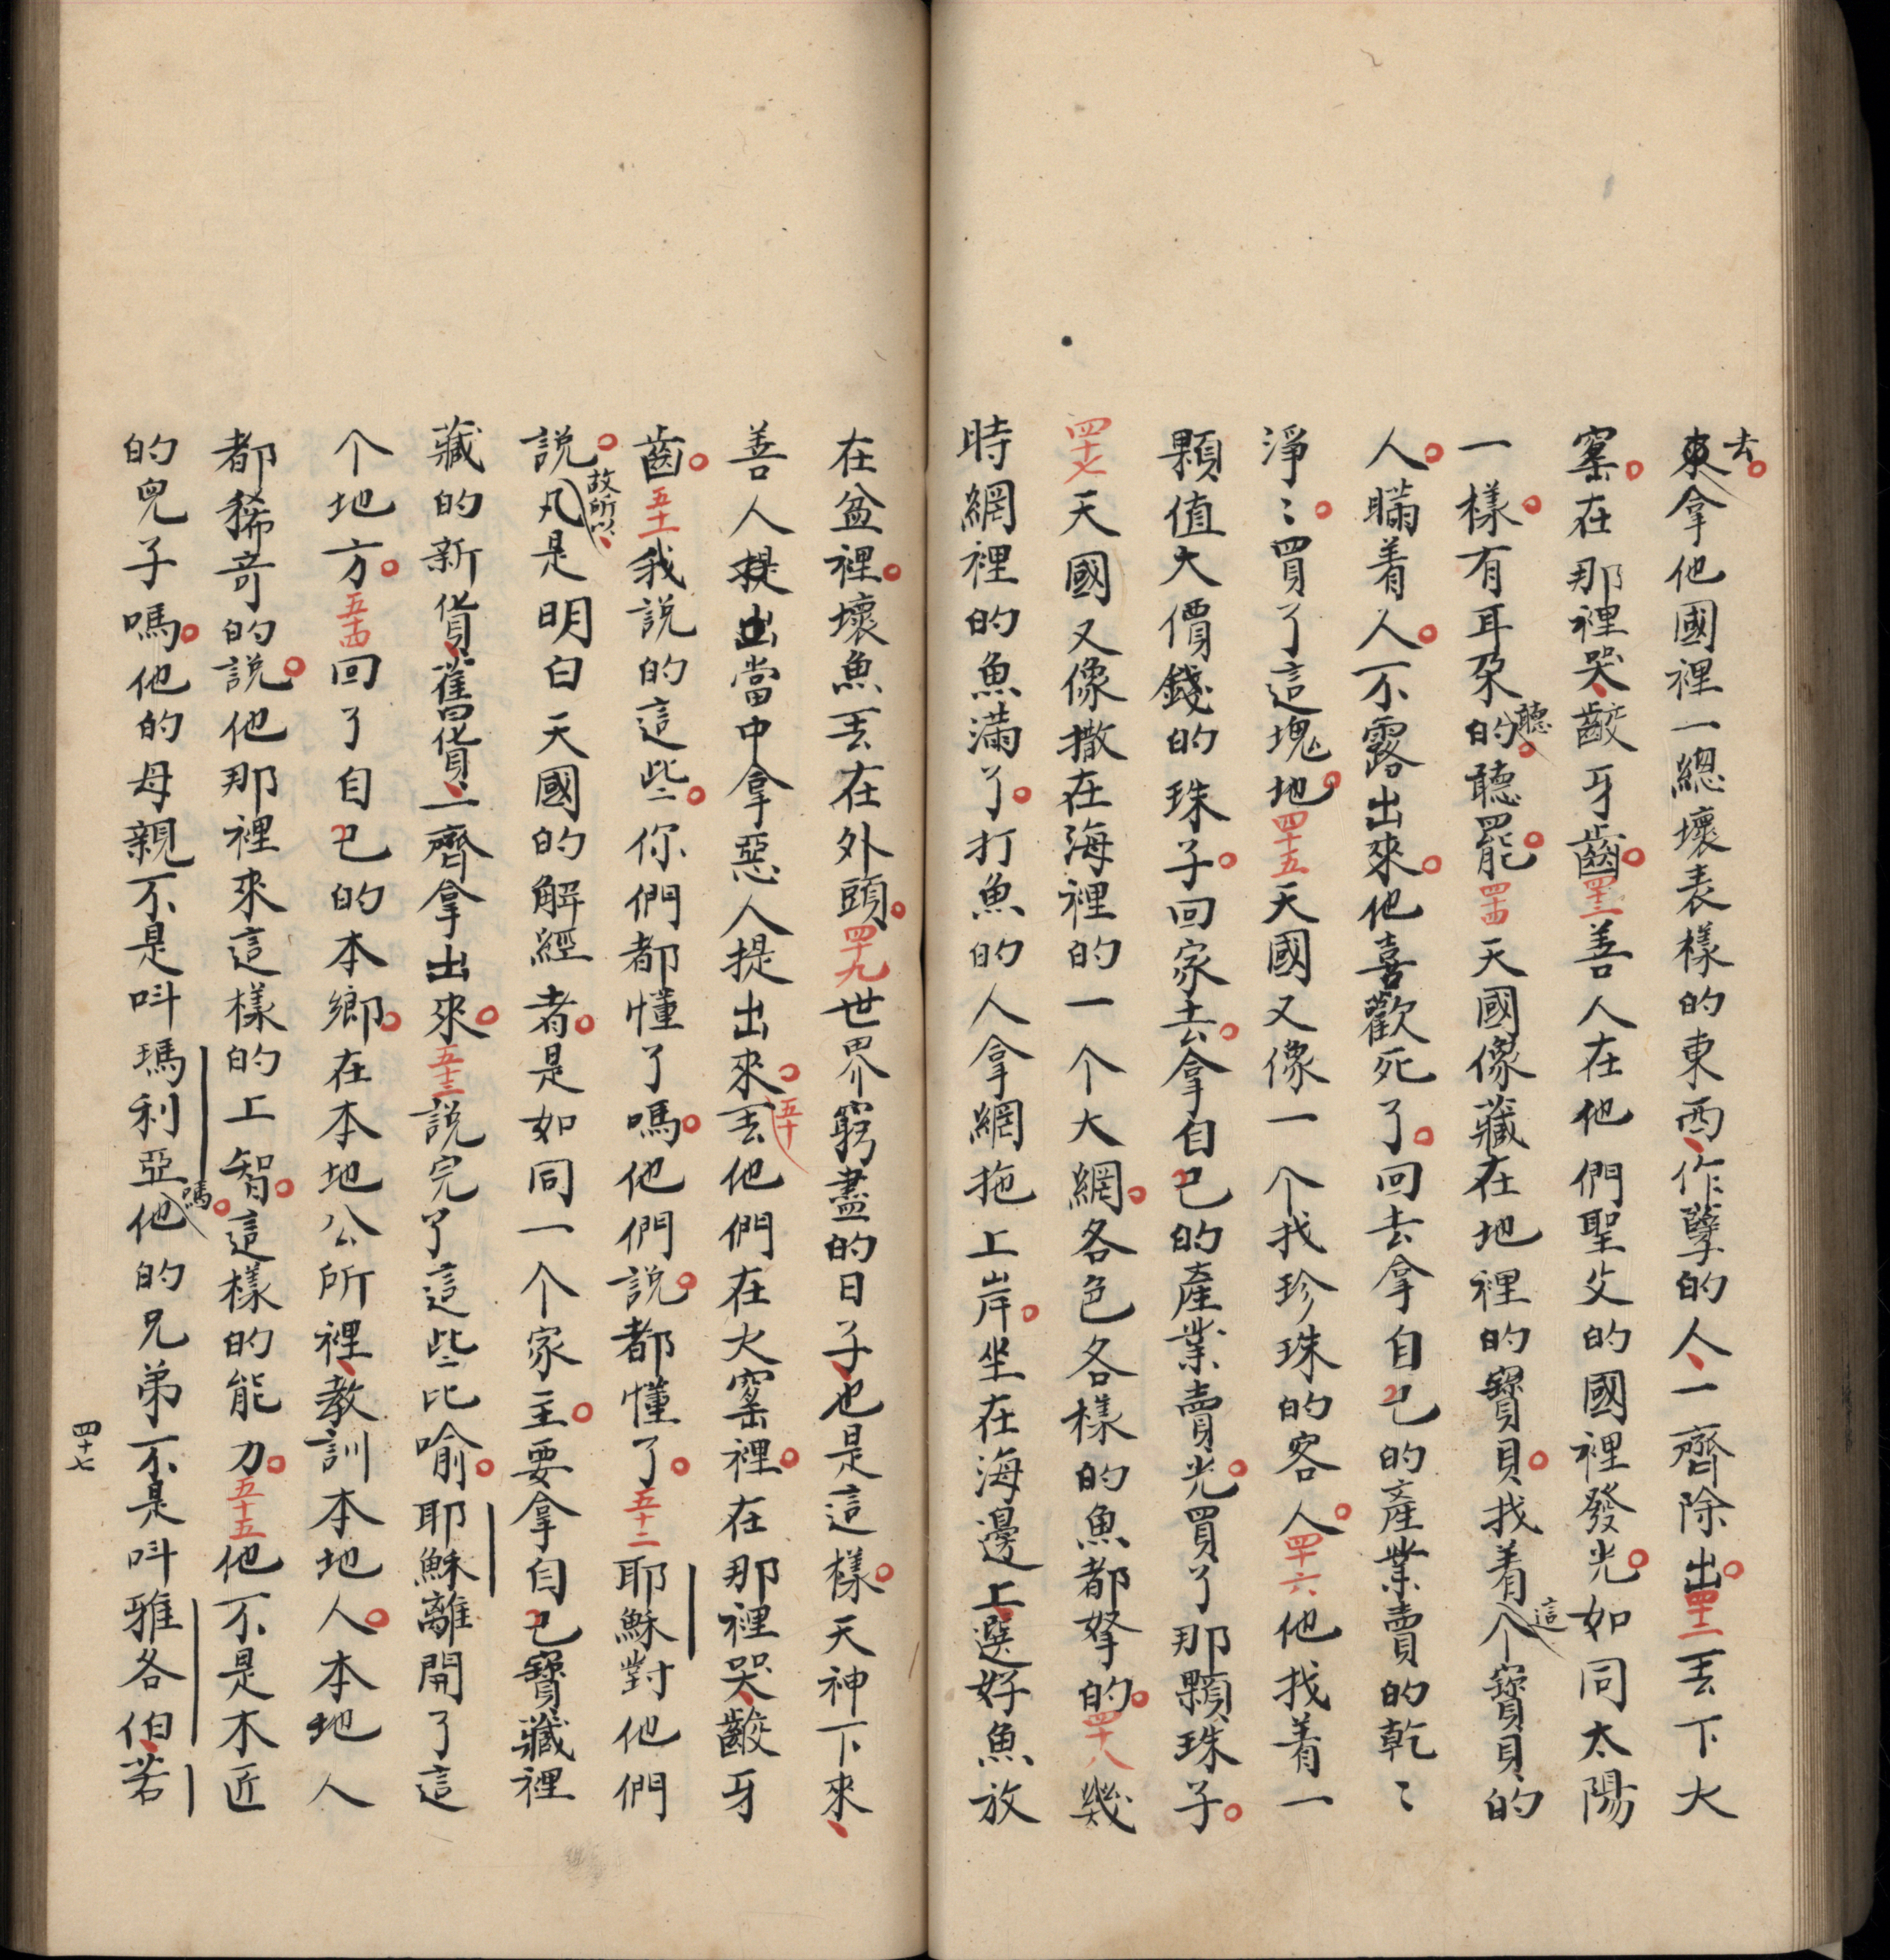 來去。拿他國裡一總壞表樣的東西、作孽的人、一齊除出。四十二丟下火
窰。在那裡哭、齩牙齒。四十三善人在他們聖父的國裡發光。如同太陽
一樣。有耳朶的聽。聽罷。四十四天國像藏在地裡的寶貝。找着這个寶貝的
人。瞞着人。不露出來。他喜歡死了。回去拿自己的產業賣的乾〻
淨〻。買了這塊地。四十五天國又像一个找珍珠的客人。四十六他找着一
顆值大價錢的珠子。回家去。拿自己的產業賣光。買了那顆珠子。
四十七天國又像撒在海裡的一个大網。各色各樣的魚都拏的。四十八幾
時網裡的魚滿了。打魚的人拿網拖上岸。坐在海邊上、選好魚放
在盆裡。壞魚丟在外頭。四十九世界窮盡的日子、也是這樣。天神下來、
善人提出當中拿惡人提出來。五十丟他們在火窰裡。在那裡哭、齩牙
齒。五十一我說的這些。你們都懂了嗎。他們說。都懂了。五十二耶穌對他們
說。故所以、凡是明白天國的解經者。是如同一个家主。要拿自己寶藏裡
藏的新貨、舊貨、一齊拿出來。五十三說完了這些比喻。耶穌離開了這
个地方。五十四回了自己的本鄉。在本地公所裡、教訓本地人。本地人
都狶竒的說。他那裡來這樣的上智。這樣的能力。五十五他不是木匠
的兒子嗎。他的母親不是呌瑪利亞嗎。他的兄弟不是呌雅各伯、若
四十七